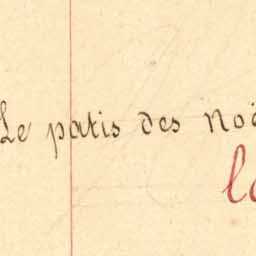 Le patis des Noë